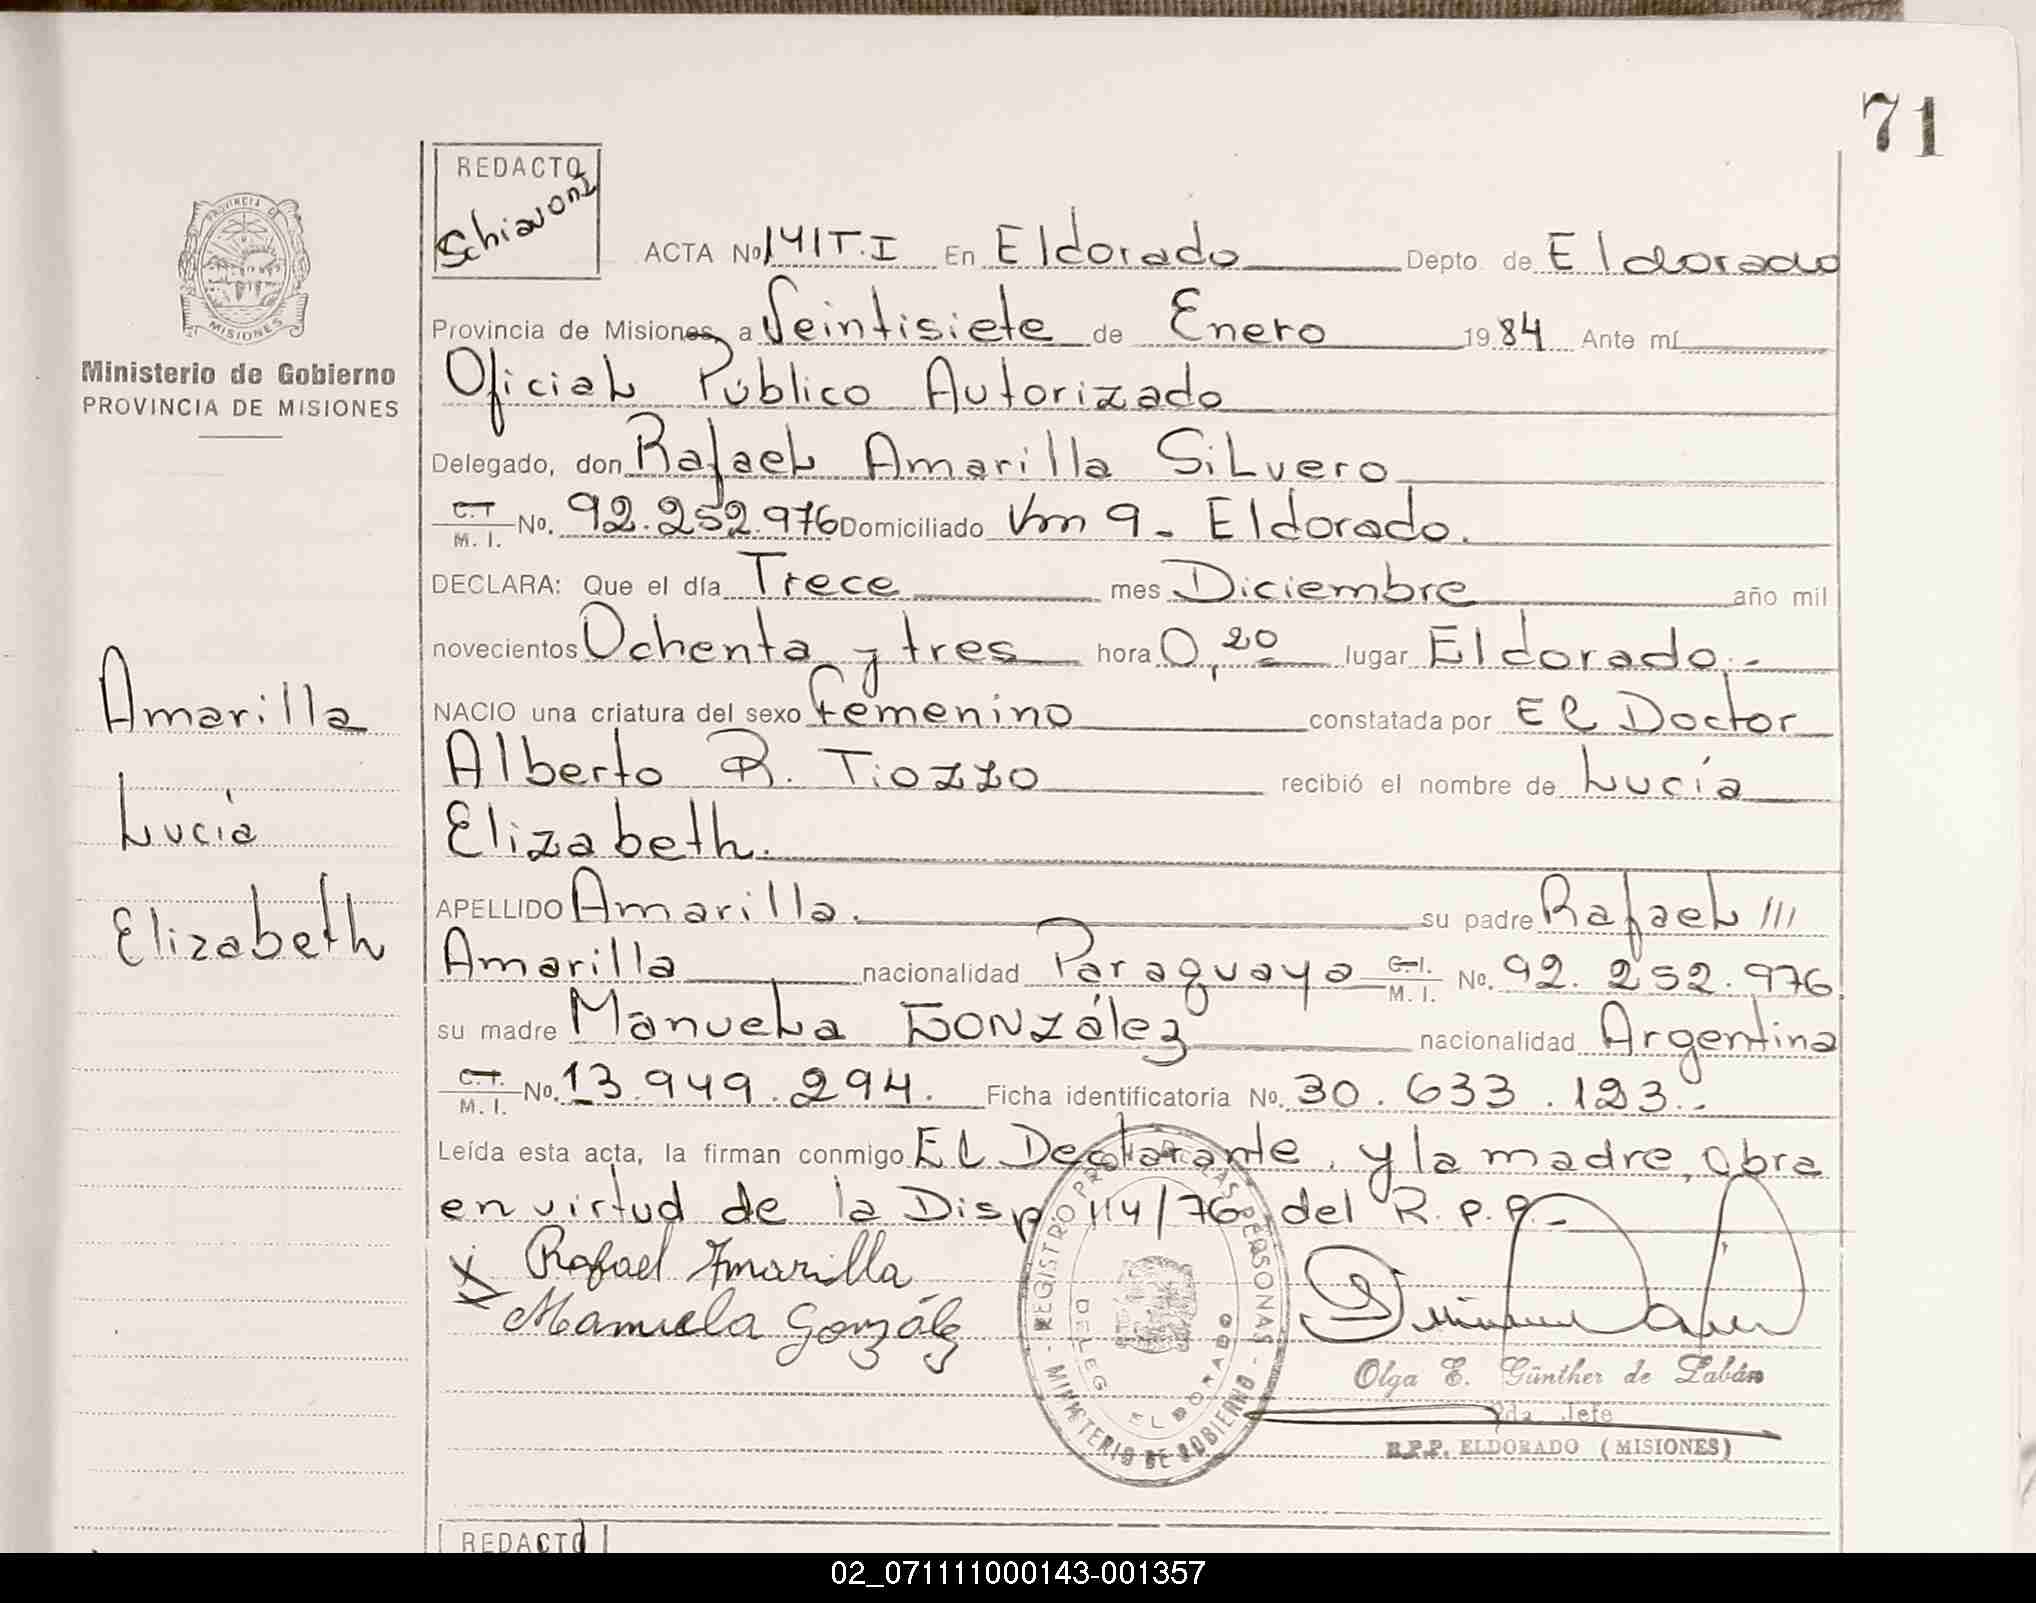 71
REDACTO
Schiavoni
PROVINCIA DE
MISIONES
Ministerio de Gobierno
PROVINCIA DE MISIONES
ACTA No 141 T.I En Eldorado Depto de Eldorado
Provincia de Misiones, a Veintisiete de Enero 1984 Ante mí
Oficial Público Autorizado
Delegado, don Rafael Amarilla Silvero
C.I. M. I. No. 92.252.976 Domiciliado Km 9 - Eldorado.
DECLARA: Que el día Trece mes Diciembre año mil
novecientos Ochenta y tres hora 0,20 lugar Eldorado.-
NACIO una criatura del sexo femenino constatada por El Doctor
Alberto R. Tiozzo recibió el nombre de Lucía
Elizabeth.
APELLIDO Amarilla. su padre Rafael ///
Amarilla nacionalidad Paraguaya C.I. M. I. No. 92.252.976
su madre Manuela González nacionalidad Argentina
C.I. M. I. No. 13.949.294. Ficha identificatoria No. 30.633.123.-
Leída esta acta, la firman conmigo El Declarante, y la madre, obra
en virtud de la Disp 114/76 del R.P.P.-
Amarilla
Lucía
Elizabeth
x Rafael Amarilla
x Manuela González
REGISTRO PROV. DE LAS PERSONAS - MINISTERIO DE GOBIERNO -
DELEG. ELDORADO
Olga E. Günther de Labán
2da Jefe
R.P.P. ELDORADO (MISIONES)
REDACTO
02_071111000143-001357